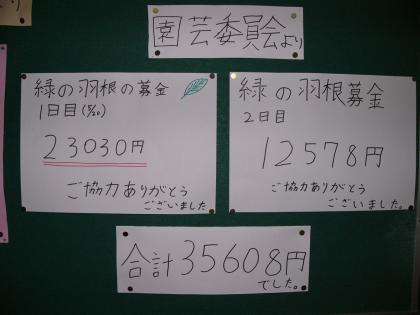 園芸委員会より
緑の羽根の募金
1日目(5/20)
23030円
ご協力ありがとう
ございました。
緑の羽根募金
2日目
12578円
ご協力ありがとう
ございました。
合計35608円
でした。